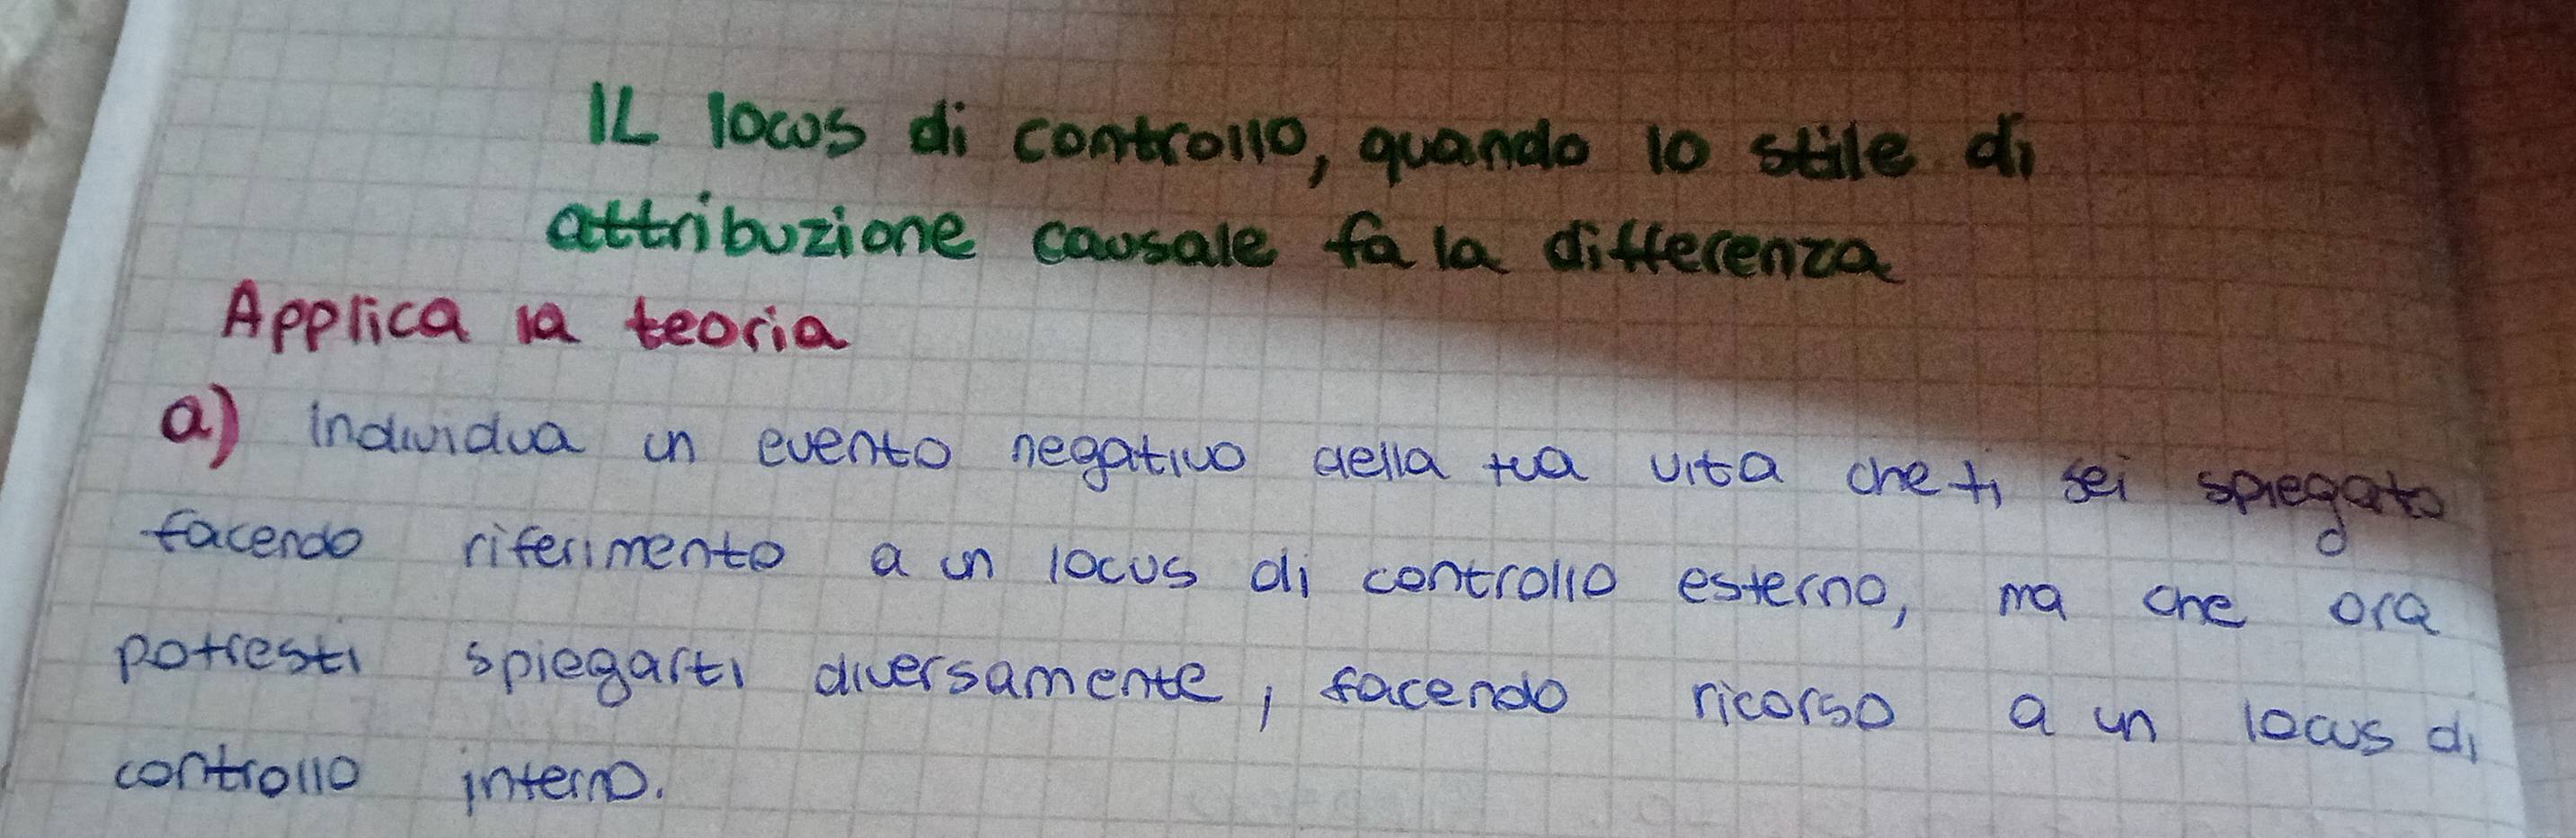 IL locus di controllo, quando lo stile di
attribuzione causale fa la differenza
Applica la teoria
a) Individua un evento negativo della tua vita che ti sei spiegato
facendo riferimento a un locus di controllo esterno, ma che ora
potresti spiegarti diversamente, facendo ricorso a un locus di
controllo interno.